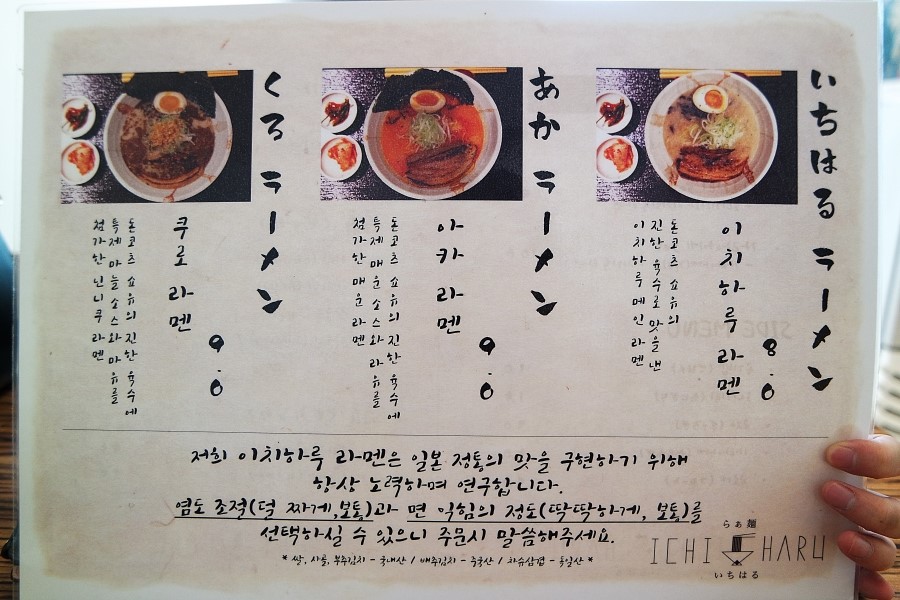 いちはる ラーメン
이치하루 라멘
8.0
돈코츠 쇼유의
진한 육수로 맛을 낸
이치하루 메인 라멘
あか ラーメン
아카 라멘
9.0
돈코츠 쇼유의 진한 육수에
특제 매운 소스와 라유를
첨가한 매운 라멘
くろ ラーメン
쿠로 라멘
9.0
돈코츠 쇼유의 진한 육수에
특제 마늘 소스와 마유를
첨가한 닌니쿠 라멘
저희 이치하루 라멘은 일본 정통의 맛을 구현하기 위해
항상 노력하며 연구합니다.
염도 조절(덜 짜게,보통)과 면 익힘의 정도(딱딱하게, 보통)를
선택하실 수 있으니 주문시 말씀해주세요.
* 쌀, 사골, 부추김치 - 국내산 / 배추김치 - 중국산 / 차슈삼겹 - 독일산 *
らぁ麺
ICHI HARU
いちはる